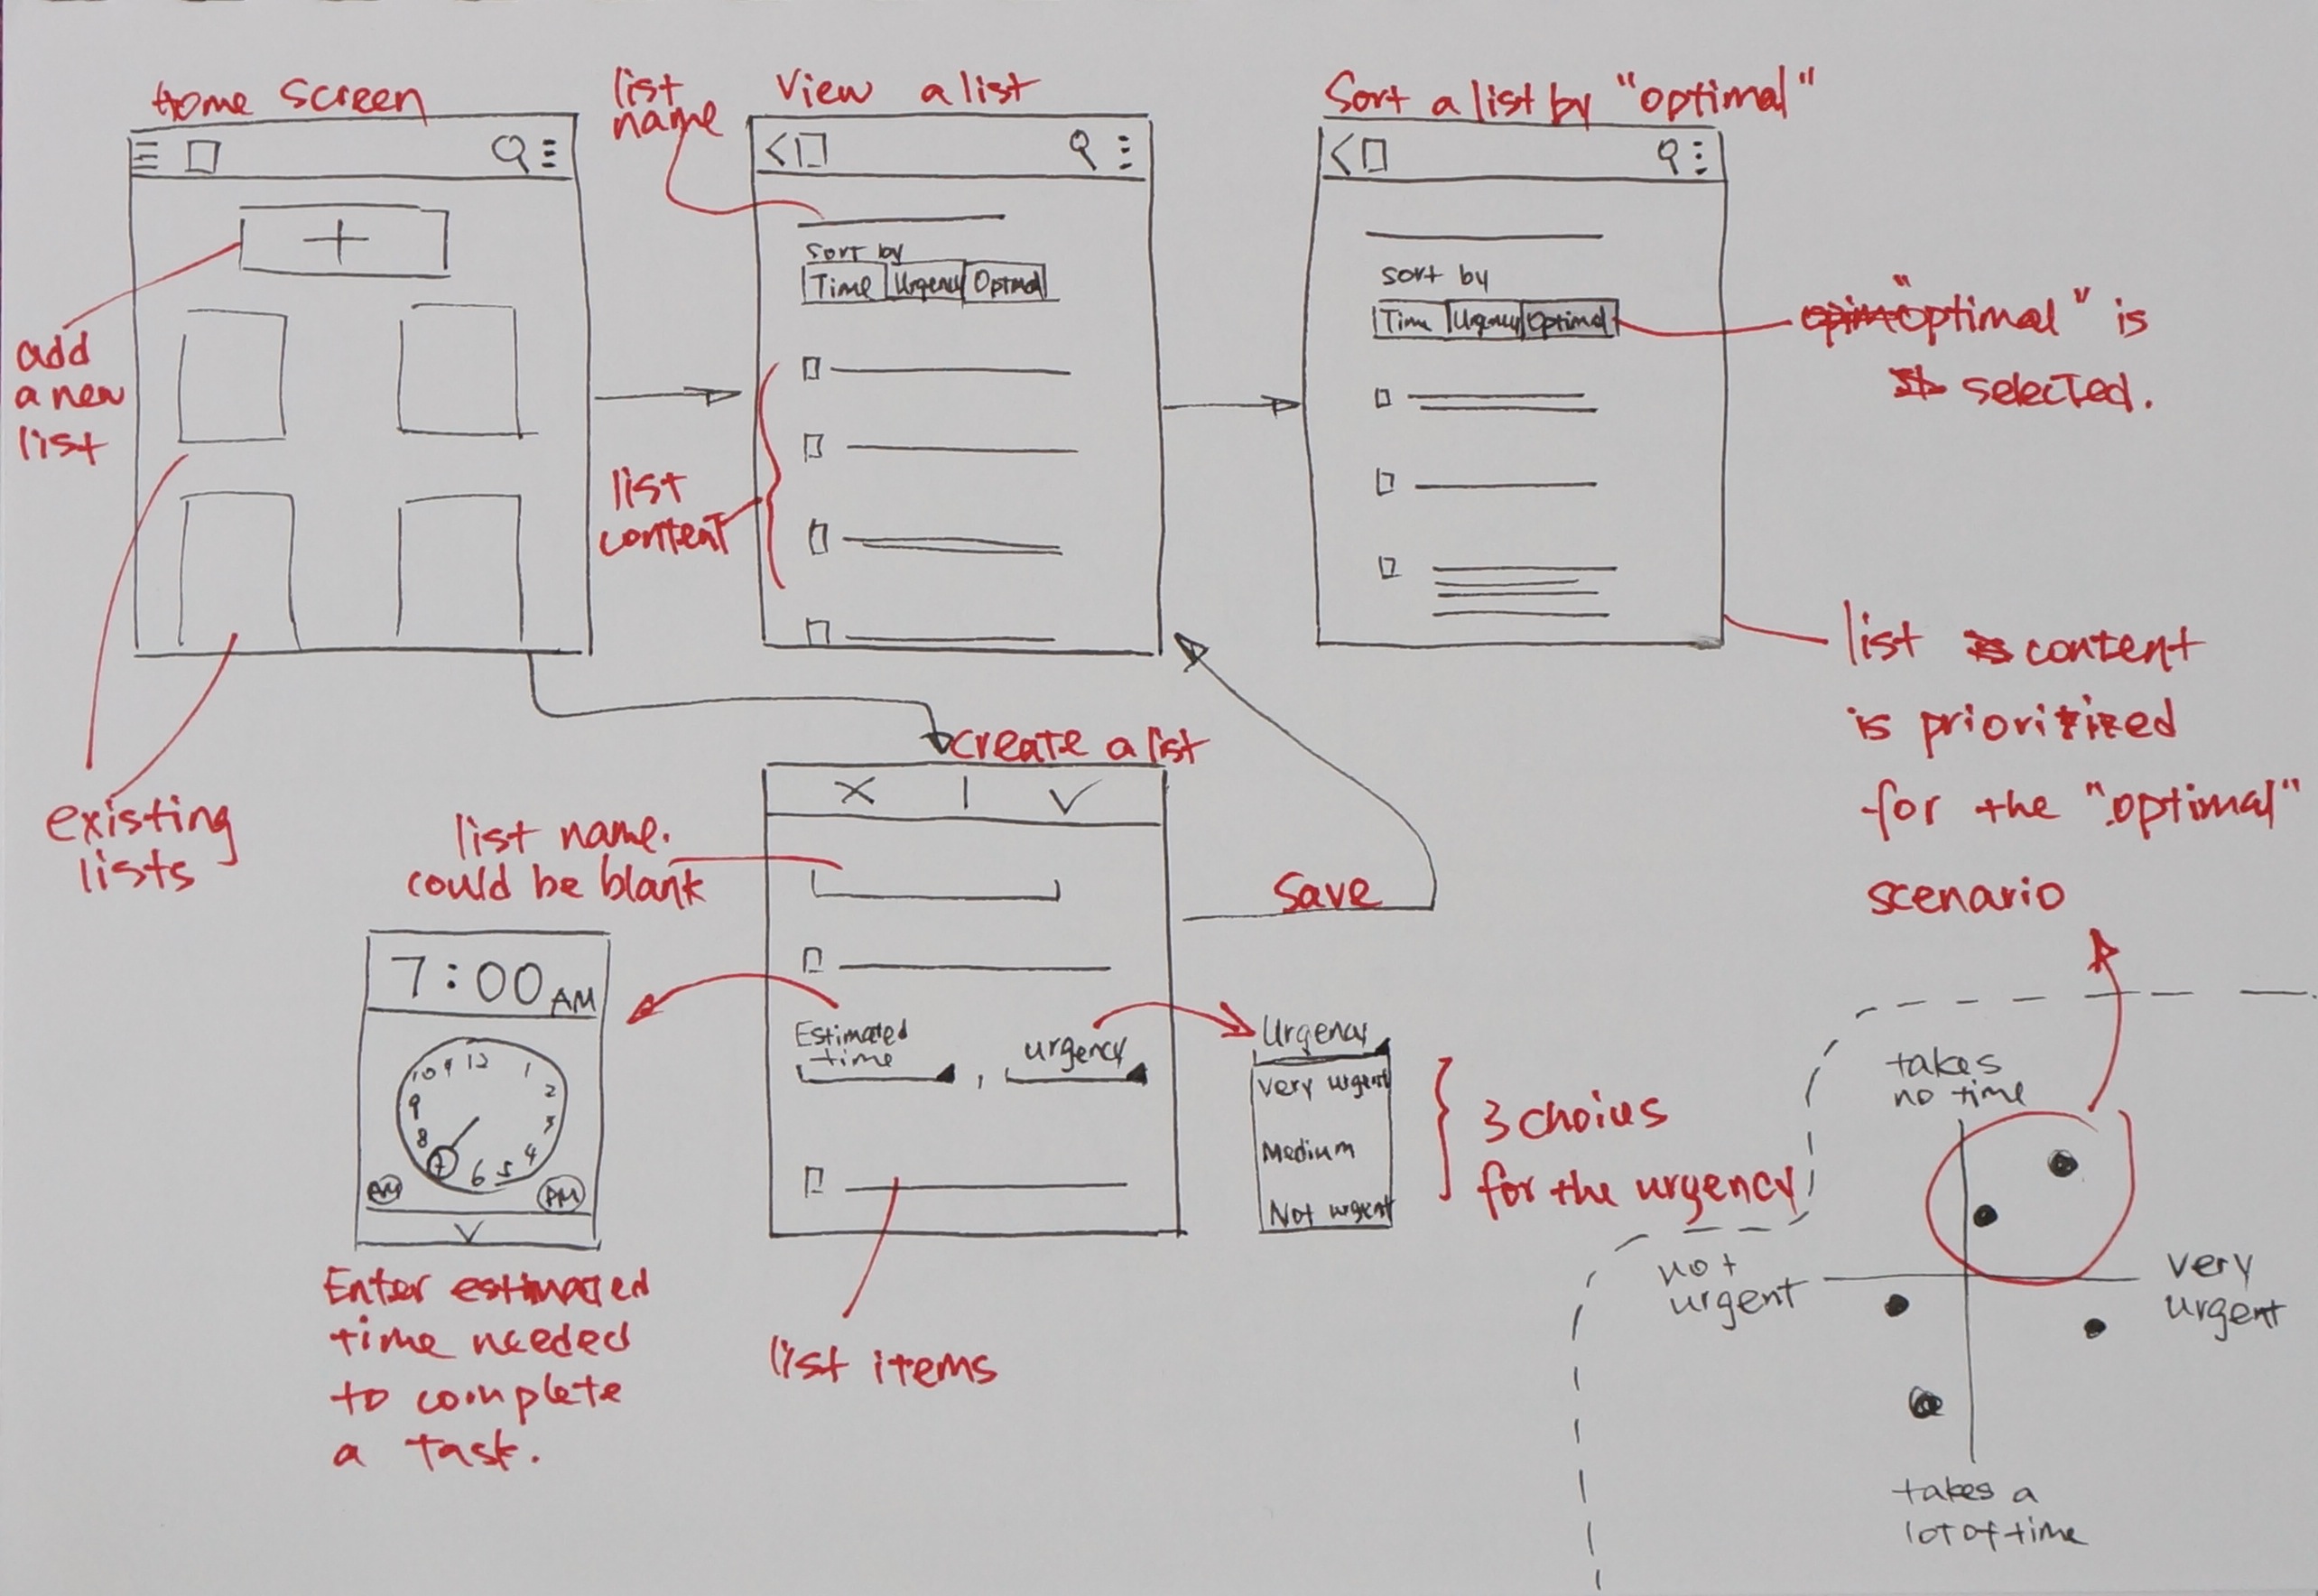 Home Screen
add
a new
list
existing
lists
list
name
View a list
Sort by
Time Urgency Optimal
list
content
Sort a list by "optimal"
sort by
Time Urgency Optimal
"optimal" is
selected.
list content
is prioritized
for the "optimal"
scenario
create a list
list name.
could be blank
Save
Estimated
time , urgency
list items
7:00 AM
10 9 12 1
2
3
4
5
6
7
8
9
AM PM
Enter estimated
time needed
to complete
a task.
Urgency
very urgent
Medium
Not urgent
3 choius
for the urgency
takes
no time
not
urgent
very
urgent
takes a
lot of time